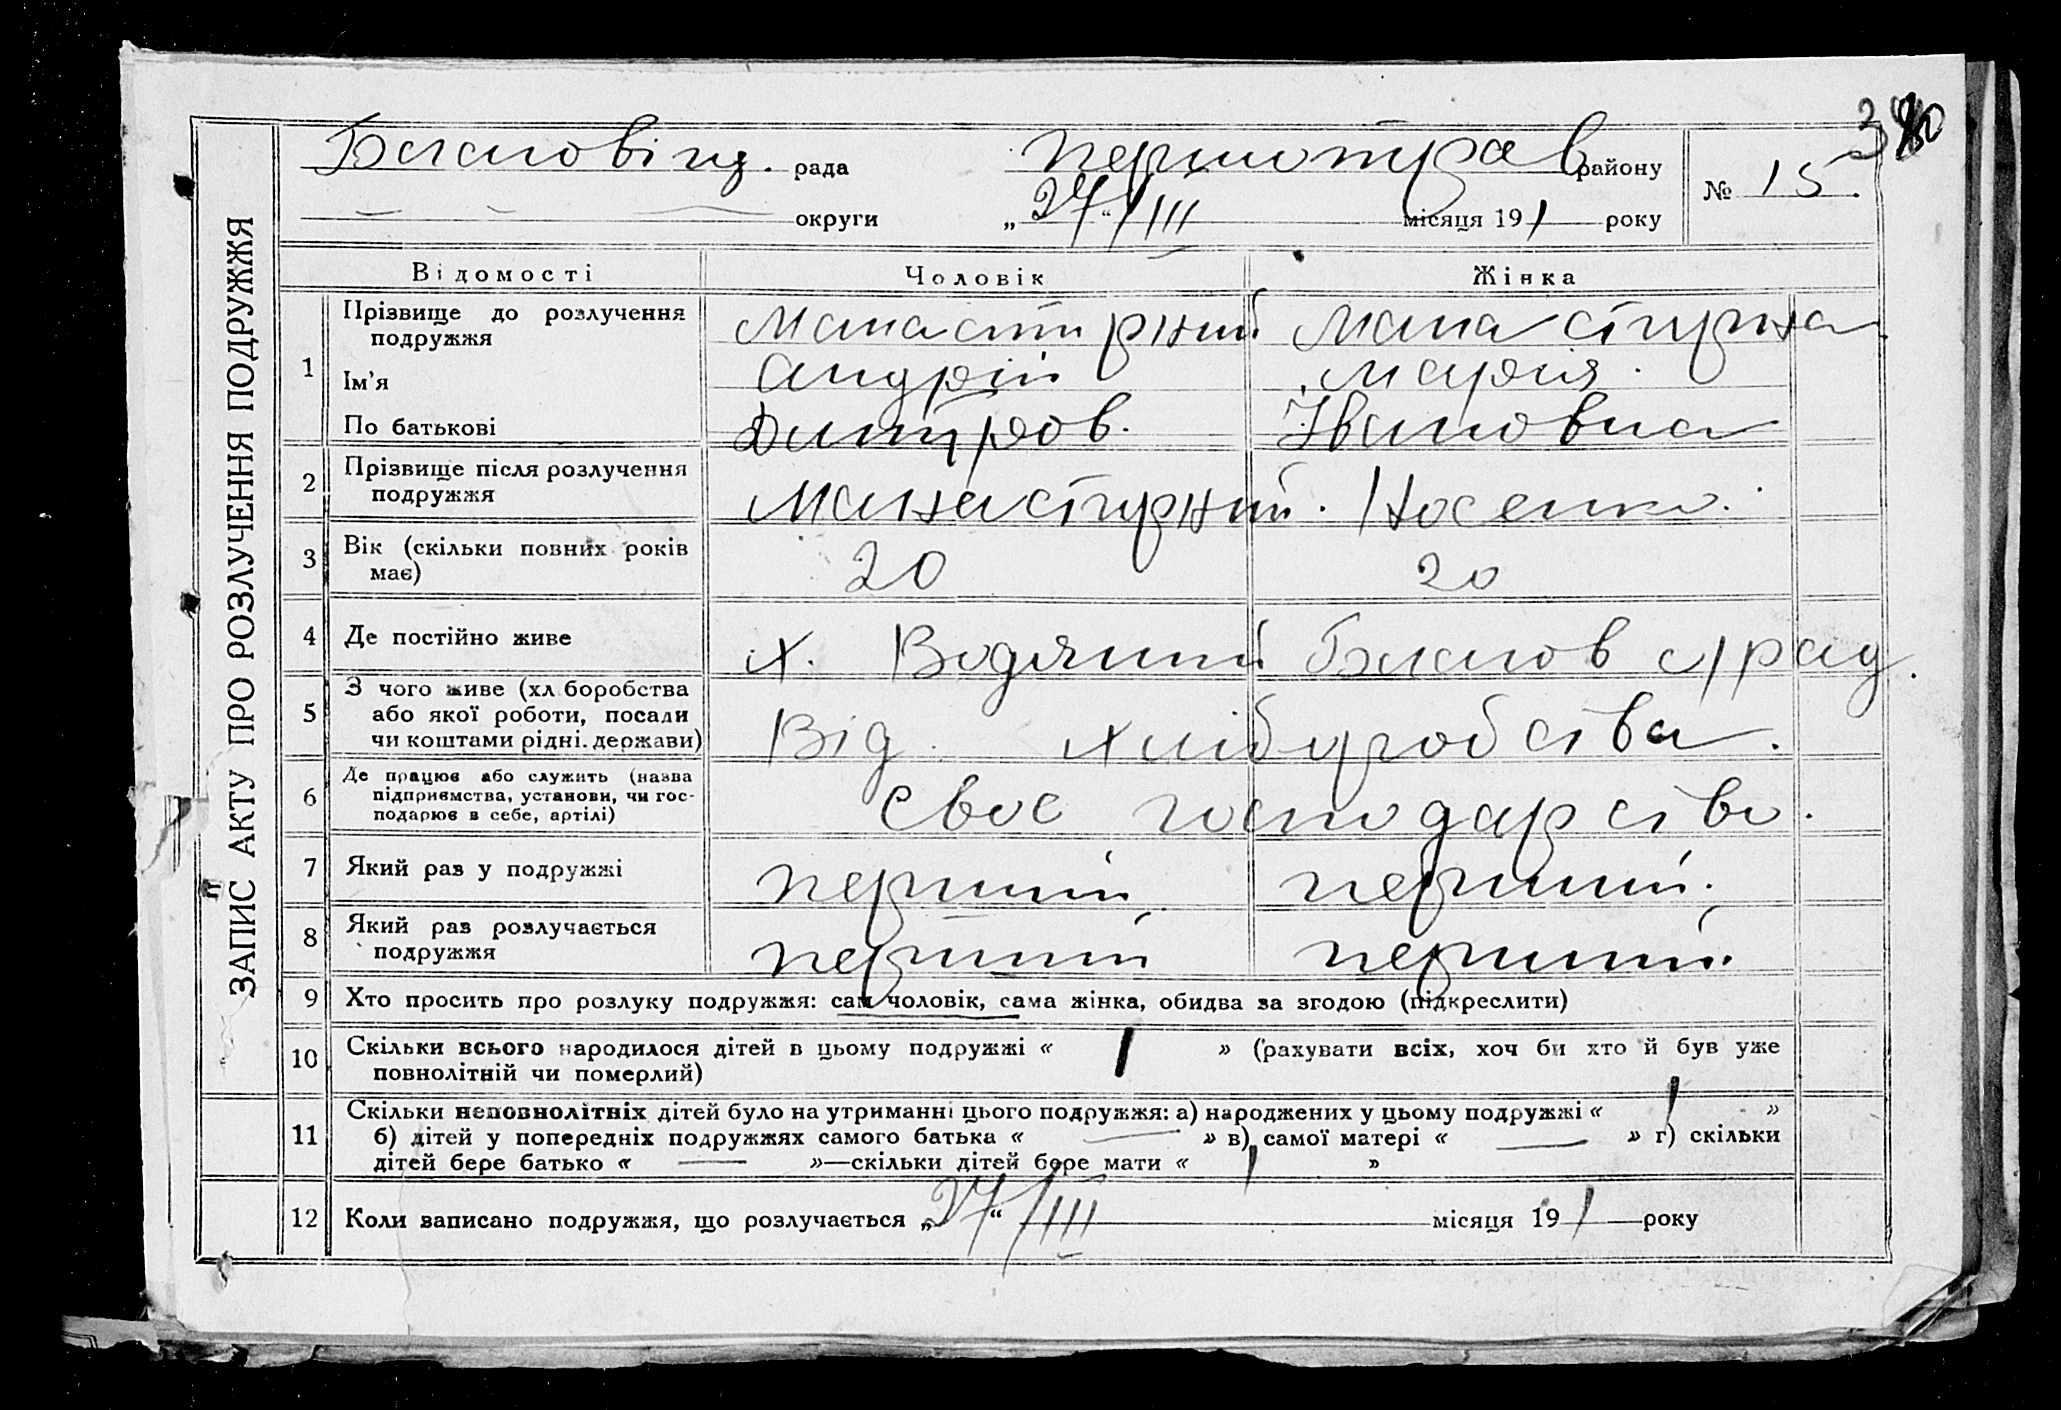 380
рада першотрав району № 15.
округи „27“/III місяця 191 року
ЗАПИС АКТУ ПРО РОЗЛУЧЕННЯ ПОДРУЖЖЯ
Відомості Чоловік Жінка
1 Прізвище до розлучення подружжя Манастирний Манастирна
Ім’я Андрій Марія.
По батькові Дмитров. Івановна
2 Прізвище після розлучення подружжя Манастирний. Носенко.
3 Вік (скільки повних років має) 20 20
4 Де постійно живе х. Водяний с/рад.
5 З чого живе (хліборобства або якої роботи, посади чи коштами рідні. держави) Від хліборобства.
6 Де працює або служить (назва підприємства, установи, чи господарює в себе, артілі) своє господарство.
7 Який раз у подружжі перший перший.
8 Який раз розлучається подружжя перший перший.
9 Хто просить про розлуку подружжя: сам чоловік, сама жінка, обидва за згодою (підкреслити)
10 Скільки всього народилося дітей в цьому подружжі « 1 » (рахувати всіх, хоч би хто й був уже
повнолітній чи померлий)
11 Скільки неповнолітніх дітей було на утриманні цього подружжя: а) народжених у цьому подружжі « 1 »
б) дітей у попередніх подружжях самого батька « — » в) самої матері « — » г) скільки
дітей бере батько « — »—скільки дітей бере мати « 1 »
12 Коли записано подружжя, що розлучається „27“/III місяця 191 року